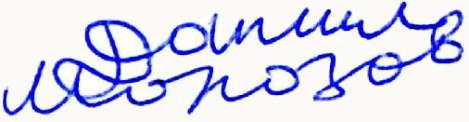 Даниил
Морозов